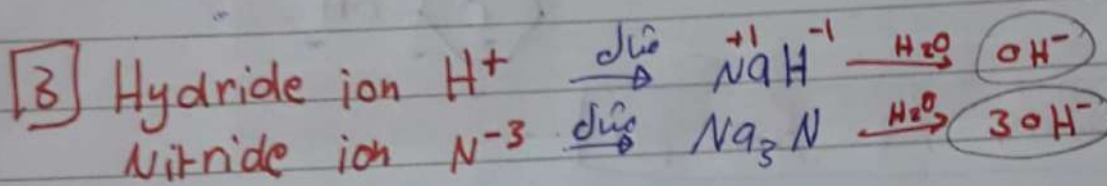 [3] Hydride ion H⁺ مثال→ Na⁺¹H⁻¹ H₂O→ OH⁻
Nitride ion N⁻³ مثال→ Na₃N H₂O→ 3OH⁻